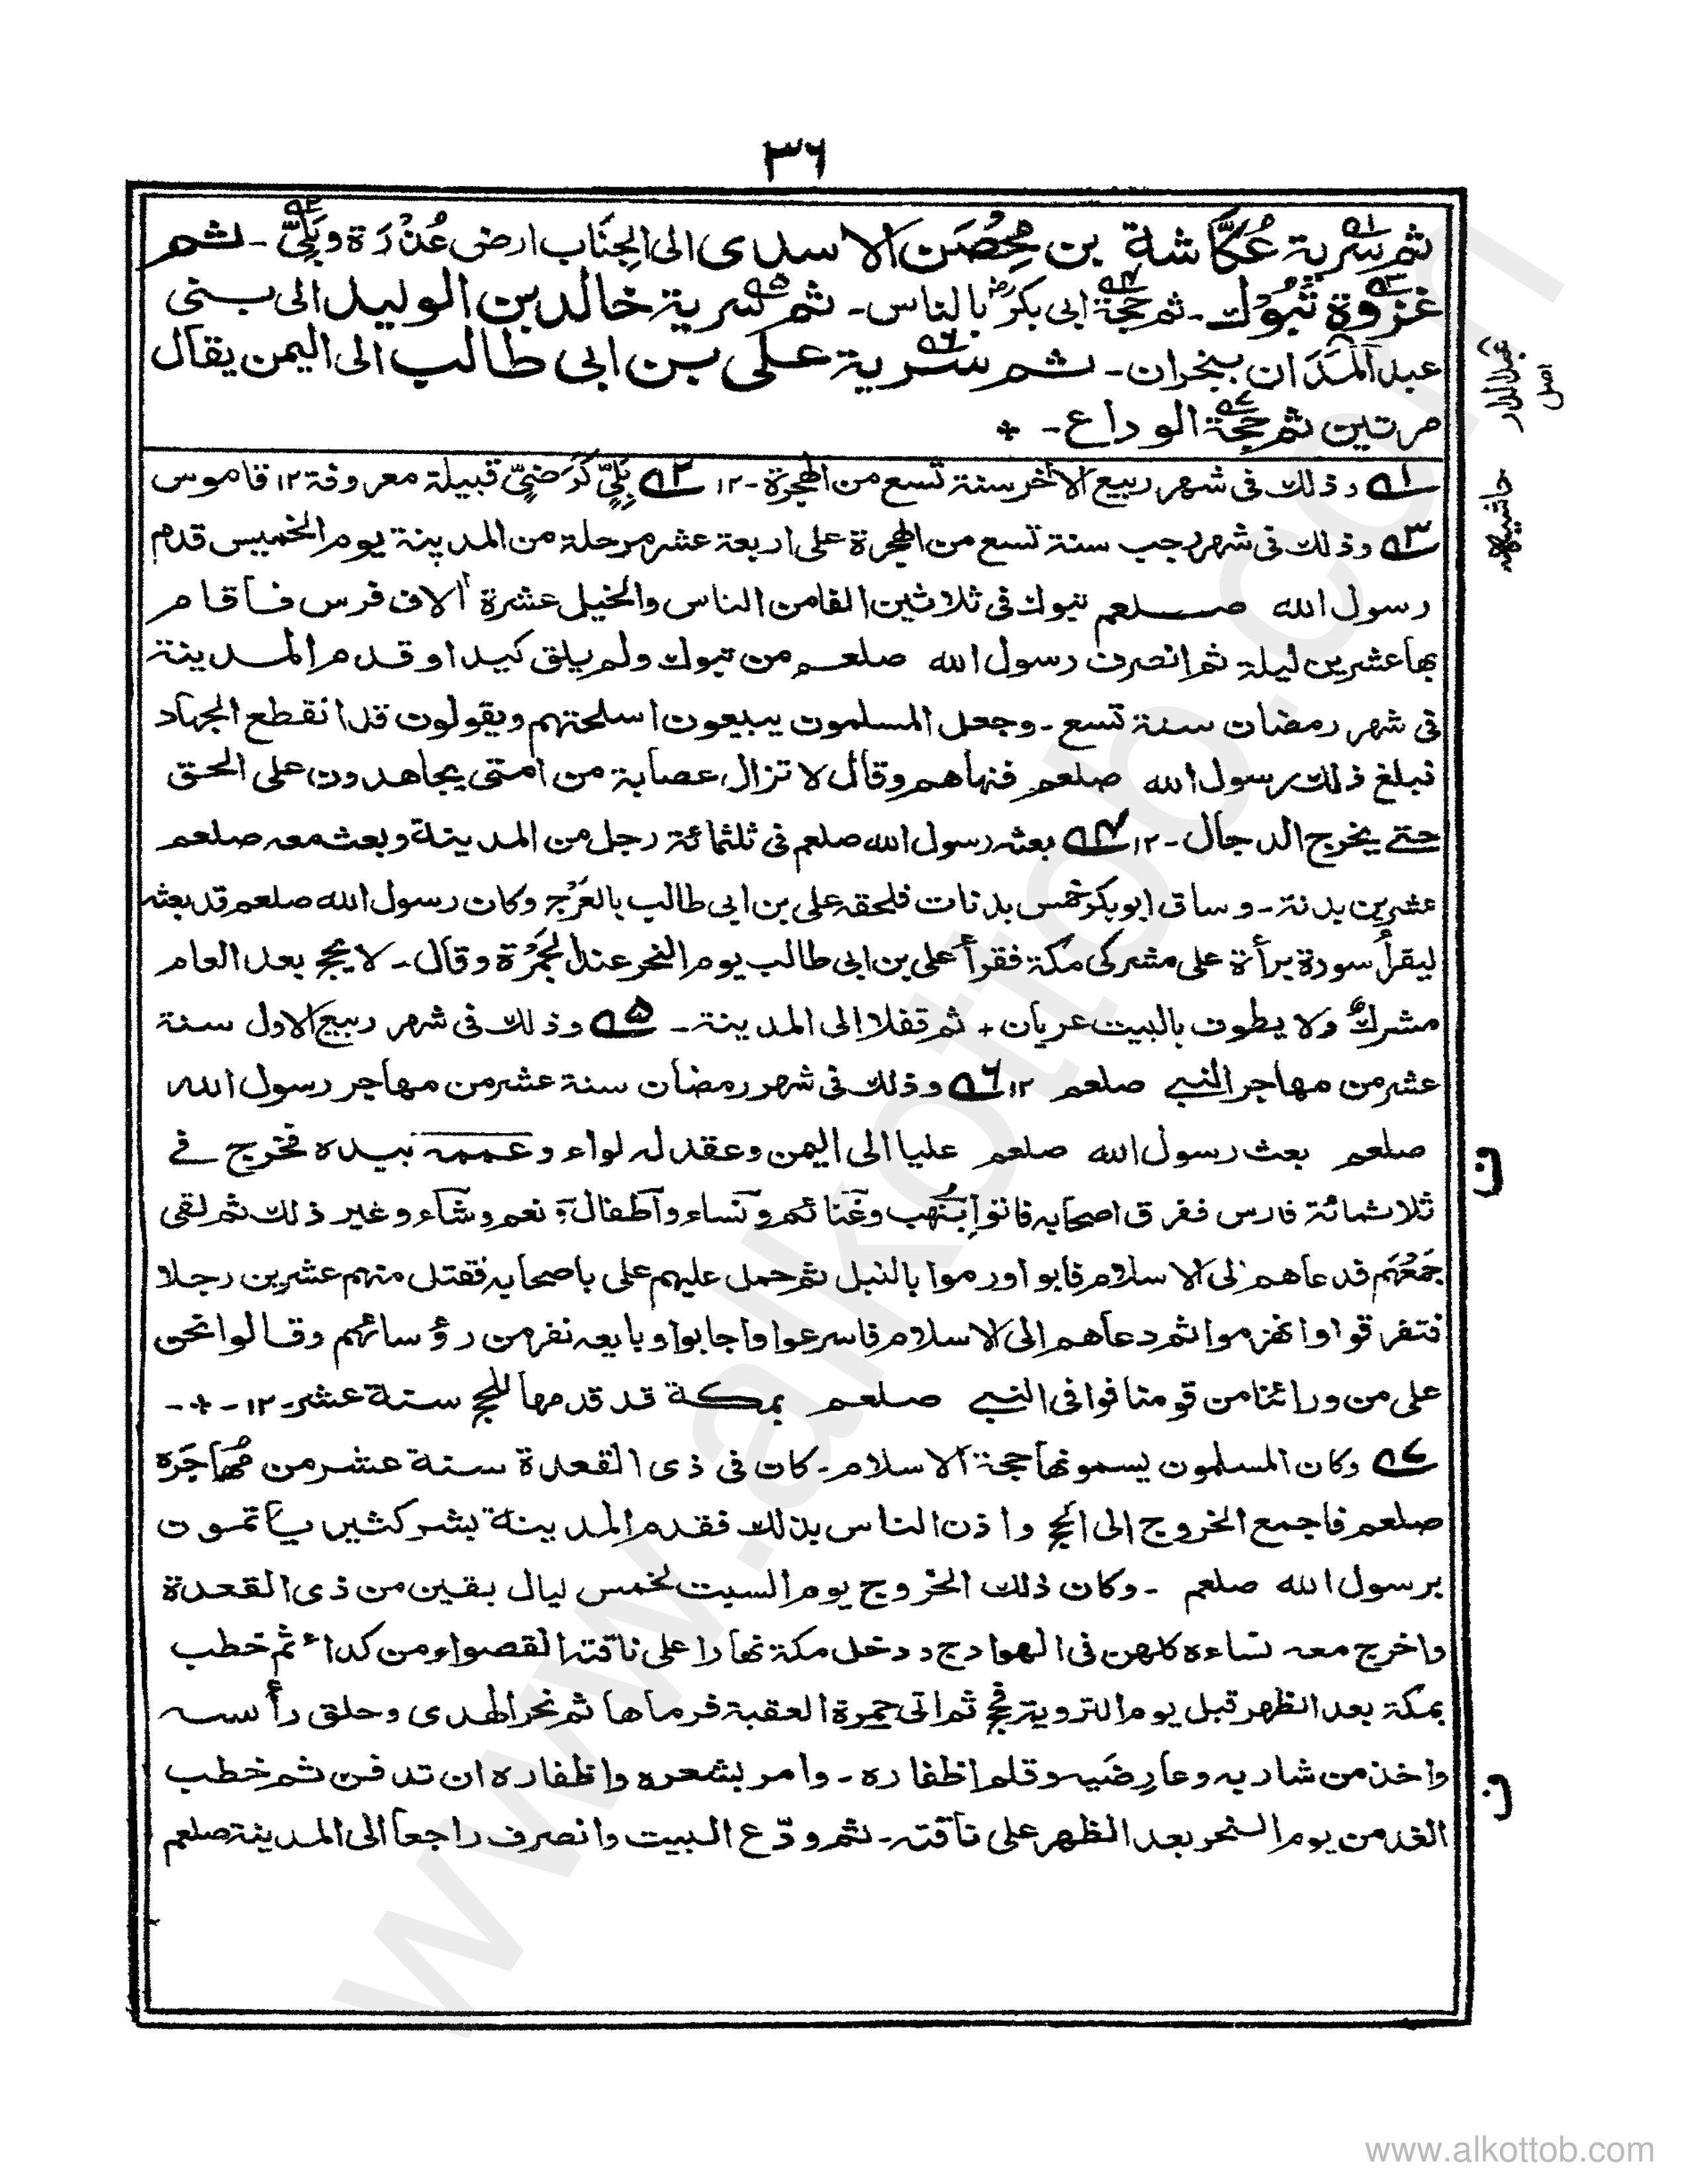 ٣٦
ثم سرية عُكَّاشة بن مِحْصَن الاسدى الى الجِنَاب ارض عُذْرَة وبَلِىّ - ثم
غزوة تَبُوْك - ثم حَجّة ابى بكر بالناس - ثم سرية خالد بن الوليد الى بنى
عبد المَدَان بنجران - ثم سرية على بن ابى طالب الى اليمن يقال
مرتين ثم حَجّة الوداع - *
عبد الدار
اصل
حاشيه
١ـه وذلك فى شهر ربيع الاخر سنة تسع من الهجرة - ١٢ ٢ـه بَلِىّ كَرَضِىّ قبيلة معروفة ١٢ قاموس
٣ـه وذلك فى شهر رجب سنة تسع من الهجرة على اربعة عشر مرحلة من المدينة يوم الخميس قدم
رسول الله صلعم تبوك فى ثلاثين الفا من الناس والخيل عشرة آلاف فرس فاقام
بها عشرين ليلة ثم انصرف رسول الله صلعم من تبوك ولم يلق كيدا وقدم المدينة
فى شهر رمضان سنة تسع - وجعل المسلمون يبيعون اسلحتهم ويقولون قد انقطع الجهاد
فبلغ ذلك رسول الله صلعم فنهاهم وقال لا تزال عصابة من امتى يجاهدون على الحق
حتے يخرج الدجال - ١٢ ٤ـه بعثه رسول الله صلعم فى ثلثمائة رجل من المدينة وبعث معه صلعم
عشرين بدنة - وساق ابوبكر خمس بدنات فلحقه على بن ابى طالب بالعَرْج وكان رسول الله صلعم قد بعثه
ليقرأ سورة برأة على مشركى مكة فقرأ على بن ابى طالب يوم النحر عند الجَمْرة وقال - لا يحج بعد العام
مشرك ولا يطوف بالبيت عريان + ثم قفلا الى المدينة - ٥ـه وذلك فى شهر ربيع الاول سنة
عشر من مهاجر النبے صلعم ١٢ ٦ـه وذلك فى شهر رمضان سنة عشر من مهاجر رسول الله
صلعم بعث رسول الله صلعم عليا الى اليمن وعقد له لواء وعممه بيده فخرج فے
ثلاثمائة فارس ففرق اصحابه فاتوا بنَهب وغنائم ونساء واطفال ونعم وشاء وغير ذلك ثم لقى
جَمْعَهم فدعاهم الى الاسلام فابوا ورموا بالنبل ثم حمل عليهم على باصحابه فقتل منهم عشرين رجلا
فتفرقوا وانهزموا ثم دعاهم الى الاسلام فاسرعوا واجابوا وبايعه نفر من رؤسائهم وقالوا نحن
على من ورائنا من قومنا فوافى النبے صلعم بمكة قد قدمها للحج سنة عشر - ١٢ - * -
٧ـه وكان المسلمون يسمونها حجة الاسلام - كان فى ذى القعدة سنة عشر من مُهاجَره
صلعم فاجمع الخروج الى الحج واذن الناس بذلك فقدم المدينة بشر كثير ياتمون
برسول الله صلعم - وكان ذلك الخروج يوم السبت لخمس ليال بقين من ذى القعدة
واخرج معه نساءه كلهن فى الهوادج ودخل مكة نهارا على ناقته القصواء من كداء ثم خطب
بمكة بعد الظهر قبل يوم التروية فحج ثم اتى جمرة العقبة فرماها ثم نحر الهدى وحلق رأسه
واخذ من شاربه وعارِضَيه وقلم اظفاره - وامر بشعره واظفاره ان تدفن ثم خطب
الغد من يوم النحر بعد الظهر على ناقته - ثم ودّع البيت وانصرف راجعا الى المدينة صلعم
ن
ن
www.alkottob.com
www.alkottob.com